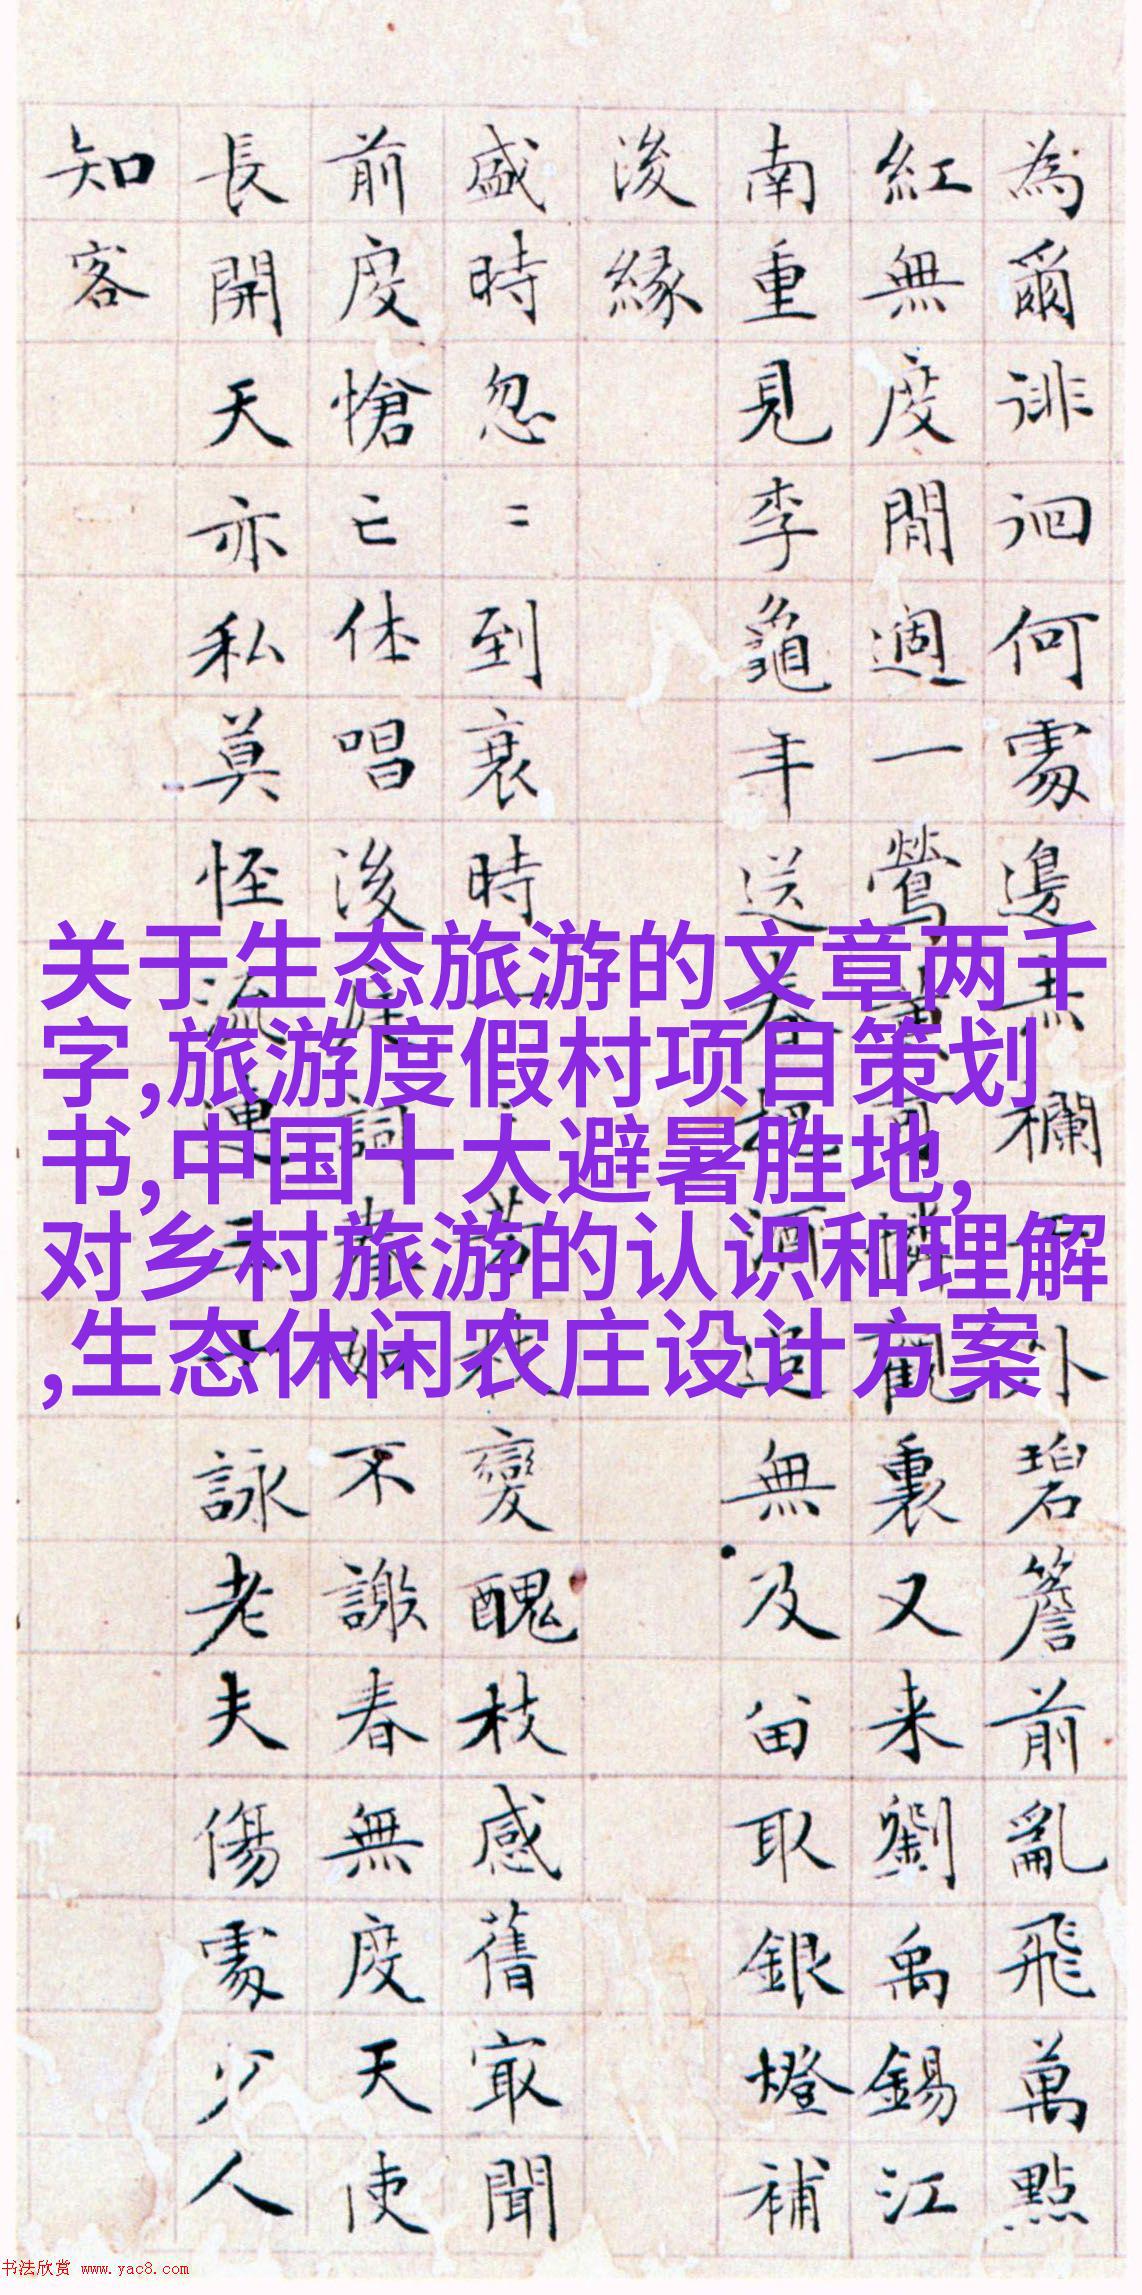 为爾徘徊何處邊赤欄 外碧簷前亂飛萬點
紅無度閒週一鶯 觀裏又来劉禹錫江
南重見李龜年送春 酒 無及留取銀燈補
後緣
盛時忽〻到衰時一 變醜枝感舊寂聞
前度愴亡休唱後庭詞 春如不謝春無度天使
長開天亦私莫怪流連三 詠老夫傷處少人
知客
关于生态旅游的文章两千
字,旅游度假村项目策划
书,中国十大避暑胜地,
对乡村旅游的认识和理解
,生态休闲农庄设计方案
书法欣赏 www.yac8.com